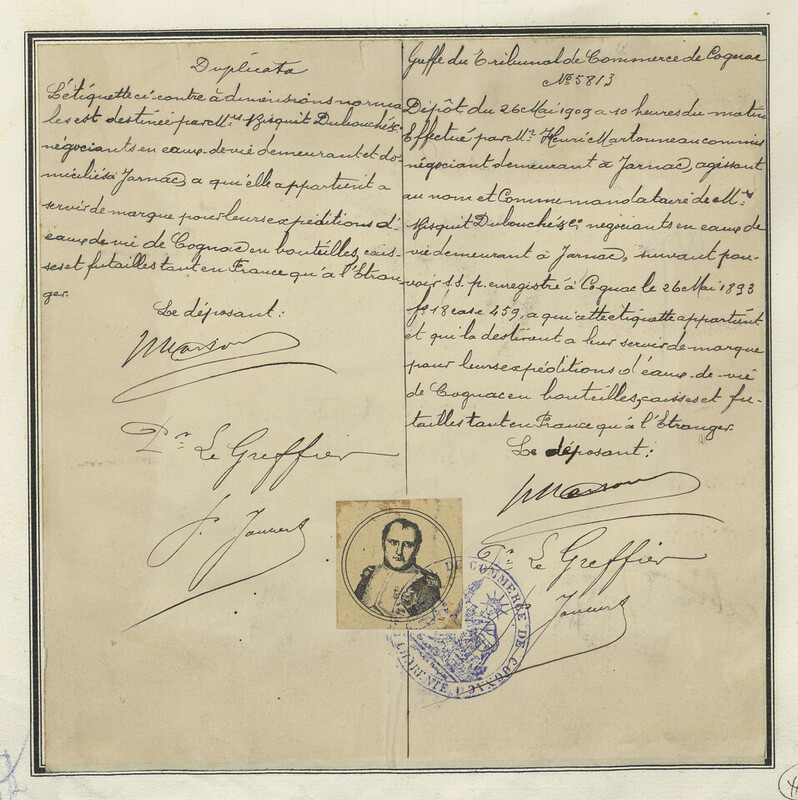 Duplicata
L'étiquette ci-contre à dimensions norma
les est destinée par Mrs Bisquit Dubouché &
négociants en eaux-de-vie demeurant et do
miciliés à Jarnac, a qu'elle appartient a
servir de marque pour leurs expéditions d'
eaux de vie de Cognac en bouteilles, cais-
ses et futailles tant en France qu'à l'Etran
ger.
Le déposant:
Pr Le Greffier
Greffe du Tribunal de Commerce de Cognac
No 5813
Dépôt du 26 Mai 1909 a 10 heures du matin
Effectué par Mr Henri Martonneau commis
négociant demeurant à Jarnac, agissant
au nom et Comme mandataire de Mrs
Bisquit Dubouché & Co négociants en eaux de
vie demeurant à Jarnac, suivant pou-
voir s.s.p. enregistré à Cognac le 26 Mai 1893
fo 18 case 459, a qui cette etiquette appartient
et qui la destinent a leur servir de marque
pour leurs expéditions d'eaux-de-vie
de Cognac en bouteilles, caisses et fu-
tailles tant en France qu'à l'Etranger.
Le déposant:
Pr Le Greffier
DE COMMERCE DE COGNAC
CHARENTE